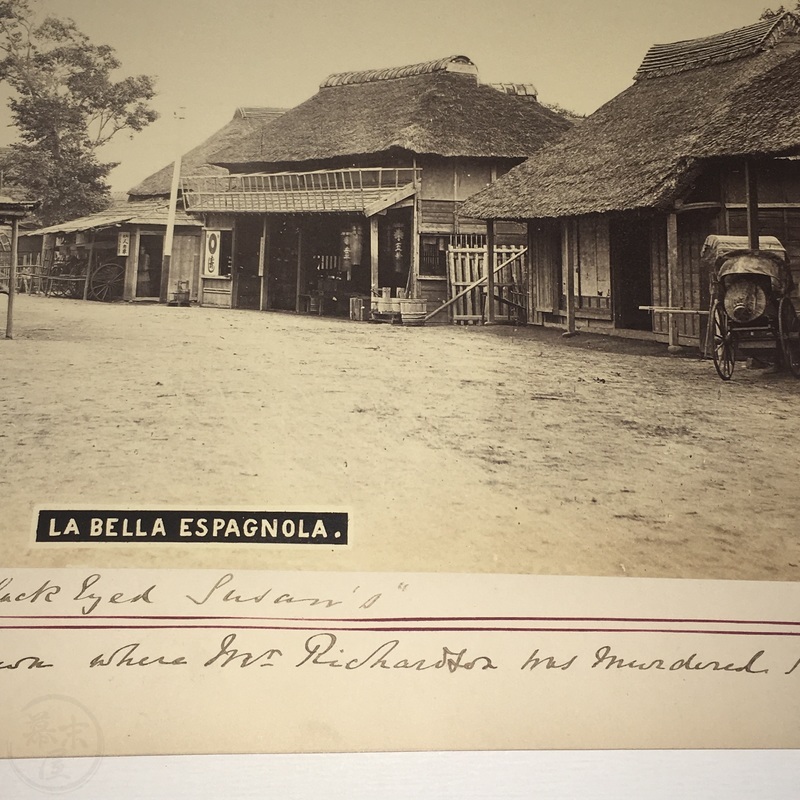 LA BELLA ESPAGNOLA.
ack Eyed Susan's"
wn where Mr Richardson was Murdered
幕末屋